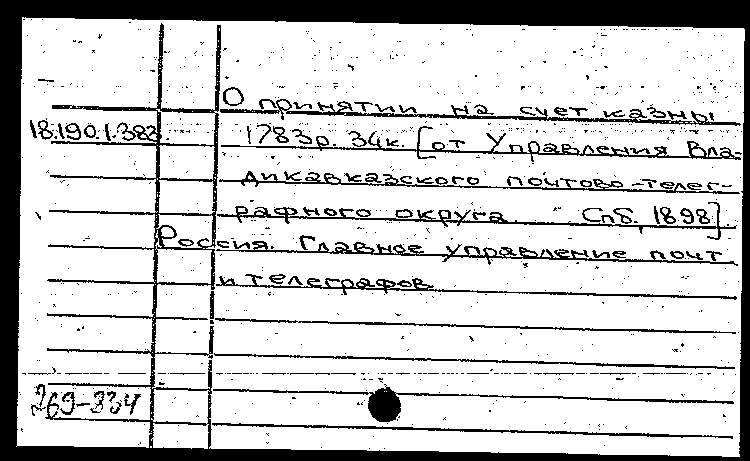 О принятии на счет казны
18.190.1.383. 1783р. 34к. [от Управления Вла-
дикавказского почтово-телег-
рафного округа Спб, 1898]
Россия. Главное управление почт
и телеграфов
269-834